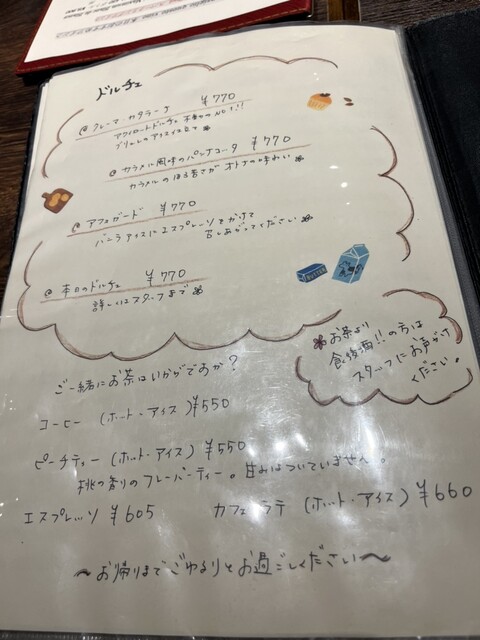 ドルチェ
@ クレーマ カタラーナ ¥770
プリンのアイス仕立て
@ カラメル風味のパンナコッタ ¥770
カラメルのほろ苦さが オトナの味わい
@ アフォガード ¥770
バニラアイスに エスプレーソをかけて
召しあがってください
@ 本日のドルチェ ¥770
詳しくはスタッフまで
BUTTER
お茶より
食後酒!! の方は
スタッフにお声がけ
ください。
ご一緒にお茶はいかがですか?
コーヒー (ホット・アイス) ¥550
ピーチティー (ホット・アイス) ¥550
桃の香りのフレーバーティー。甘みはついていません。
エスプレッソ ¥605
カフェ ラテ (ホット・アイス) ¥660
〜お帰りまでごゆるりとお過ごしください〜